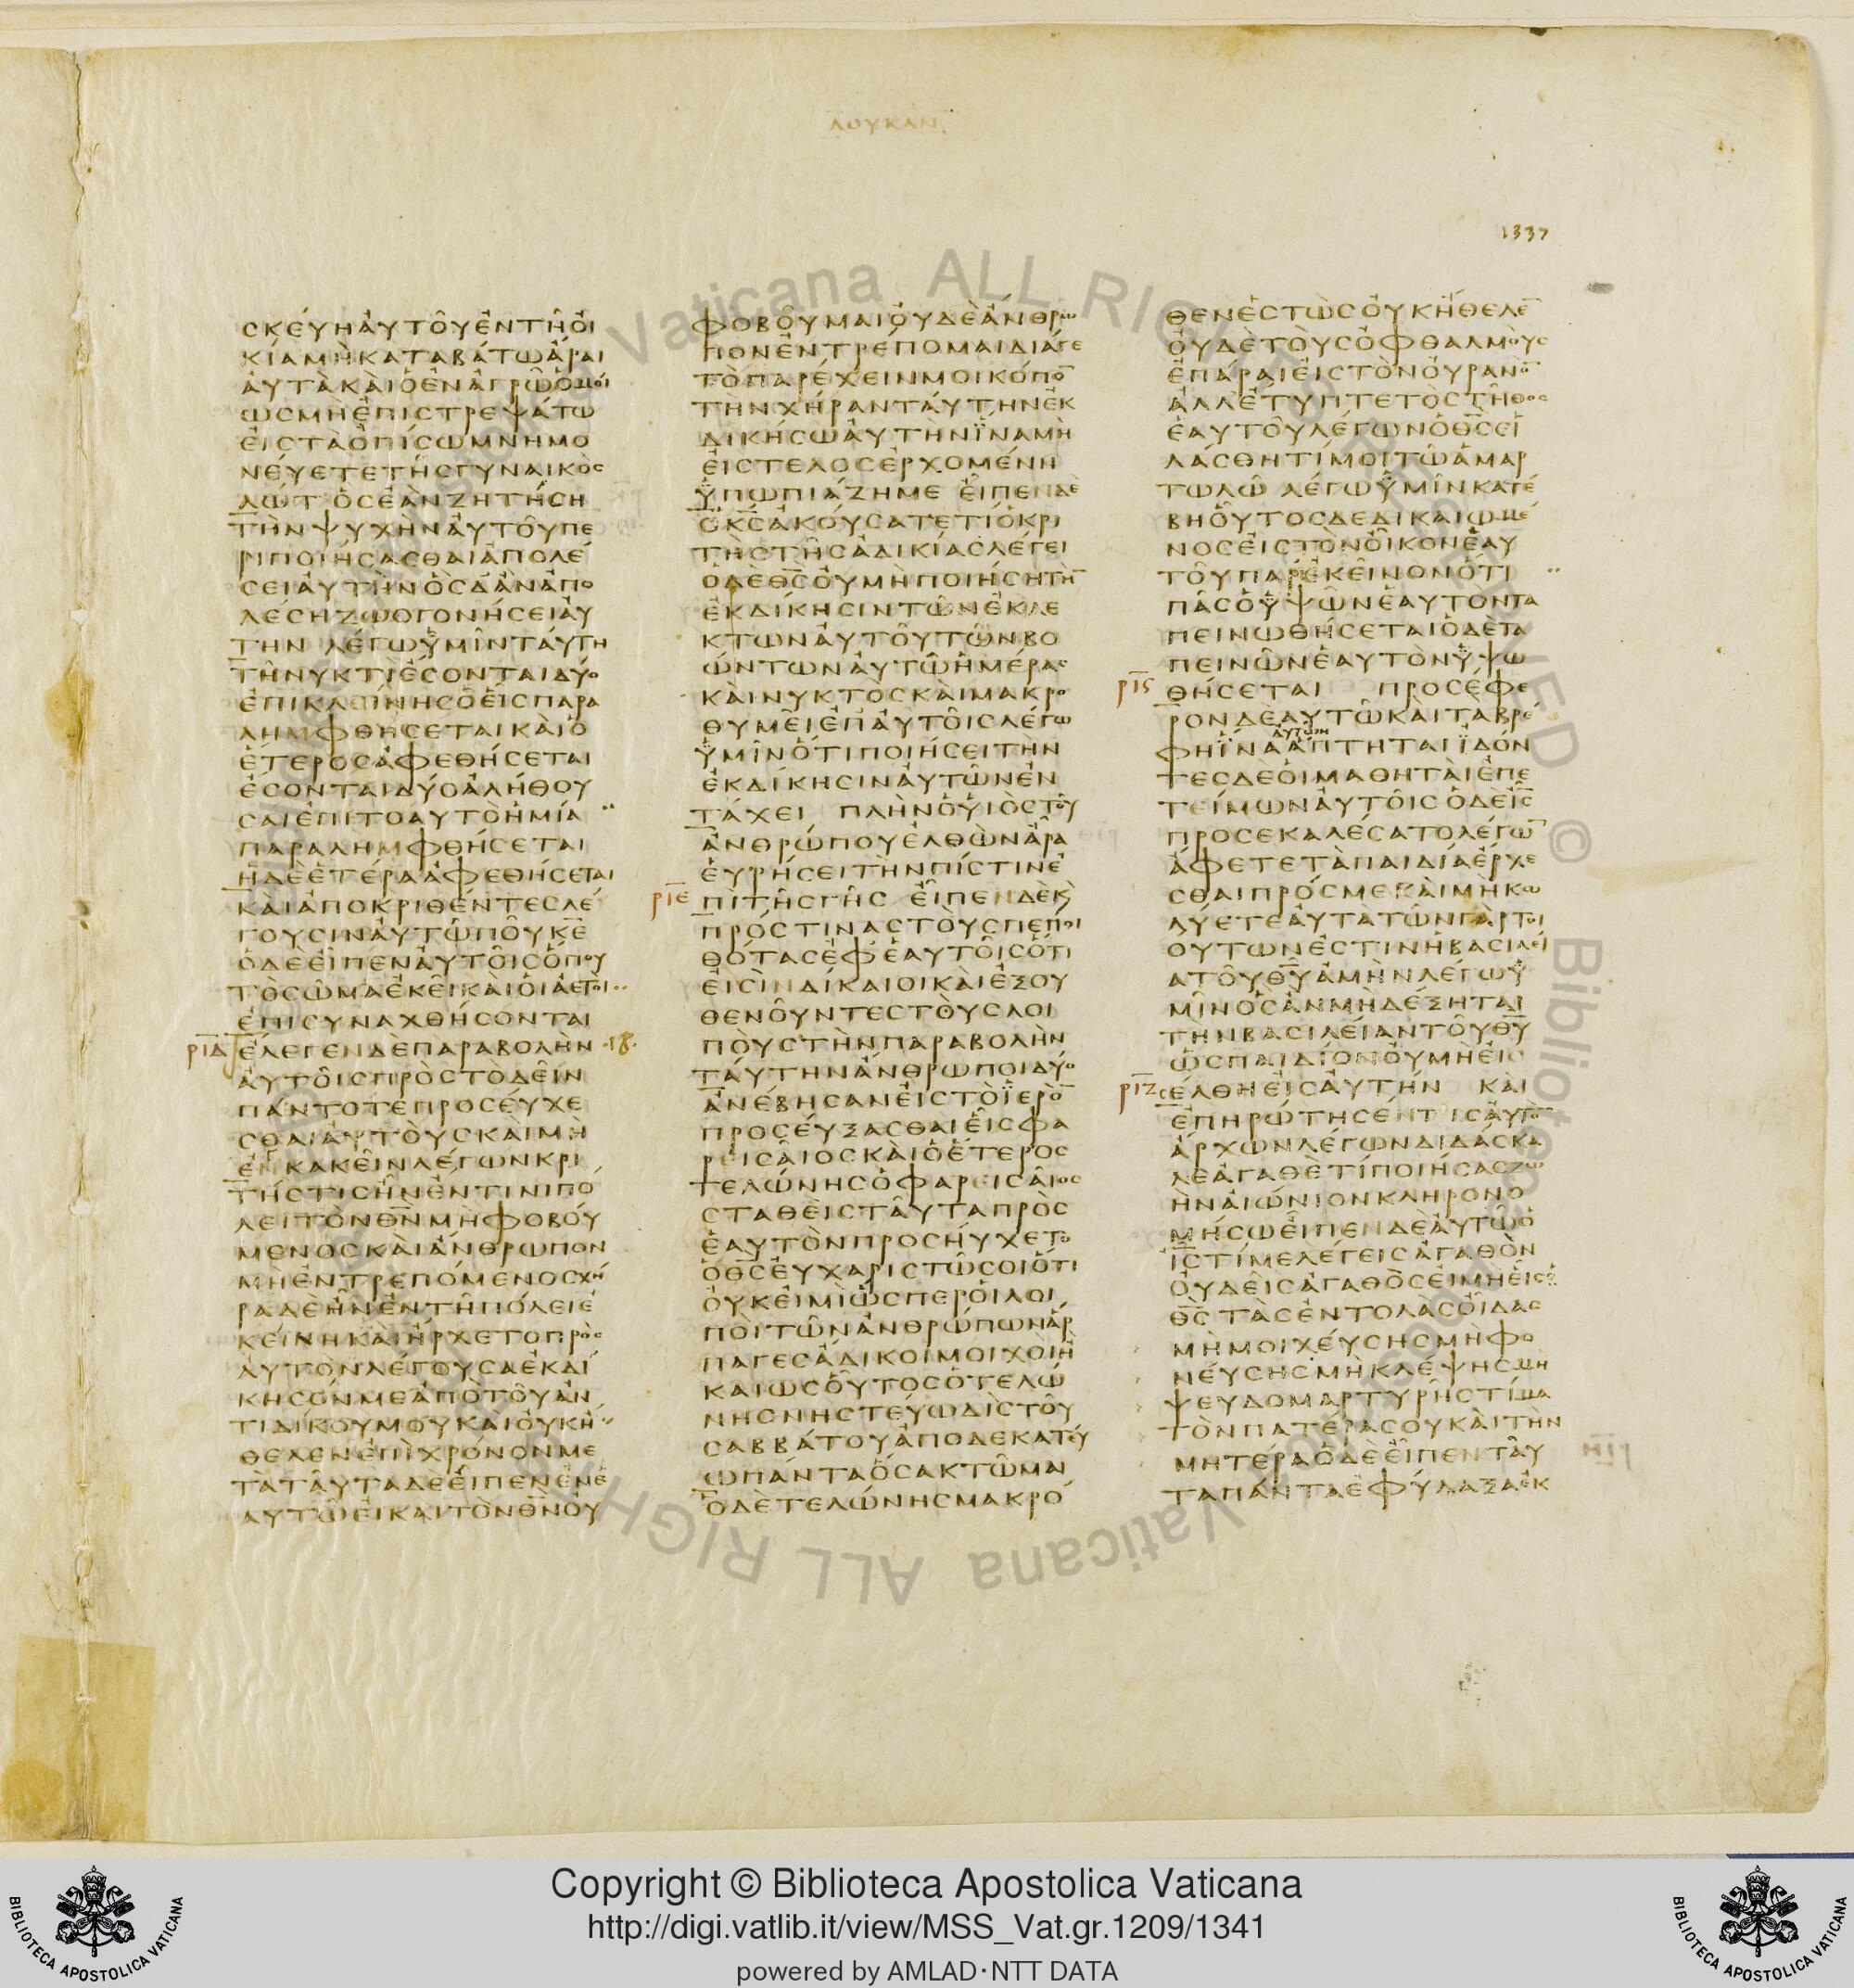 ΛΟΥΚΑΝ
1337
ΣΚΕΎΗΑΥΤΟΥΕΝΤΗΟΙ
ΚΙΑΜΗΚΑΤΑΒΑΤΩΑΡΑΙ
ΑΥΤΑΚΑΙΟΕΝΑΓΡΩΟΜΟΙ
ΩΣΜΗΕΠΙΣΤΡΕΨΑΤΩ
ΕΙΣΤΑΟΠΙΣΩΜΝΗΜΟ
ΝΕΥΕΤΕΤΗΣΓΥΝΑΙΚΟΣ
ΛΩΤ ΟΣΕΑΝΖΗΤΗΣΗ
ΤΗΝΨΥΧΗΝΑΥΤΟΥΠΕ
ΡΙΠΟΙΗΣΑΣΘΑΙΑΠΟΛΕ
ΣΕΙΑΥΤΗΝΟΣΔΑΝΑΠΟ
ΛΕΣΗΖΩΟΓΟΝΗΣΕΙΑΥ
ΤΗΝ ΛΕΓΩΥΜΙΝΤΑΥΤΗ
ΤΗΝΥΚΤΙΕΣΟΝΤΑΙΔΥΟ
ΕΠΙΚΛΕΙΝΗΣΟΕΙΣΠΑΡΑ
ΛΗΜΦΘΗΣΕΤΑΙΚΑΙΟ
ΕΤΕΡΟΣΑΦΕΘΗΣΕΤΑΙ
ΕΣΟΝΤΑΙΔΥΟΑΛΗΘΟΥ
ΣΑΙΕΠΙΤΟΑΥΤΟΗΜΙΑ
ΠΑΡΑΛΗΜΦΘΗΣΕΤΑΙ
ΗΔΕΕΤΕΡΑΑΦΕΘΗΣΕΤΑΙ
ΚΑΙΑΠΟΚΡΙΘΕΝΤΕΣΛΕ
ΓΟΥΣΙΝΑΥΤΩΠΟΥΚ̅Ε̅
ΟΔΕΕΙΠΕΝΑΥΤΟΙΣΟΠΟΥ
ΤΟΣΩΜΑΕΚΕΙΚΑΙΟΙΑΕΤΟΙ
ΕΠΙΣΥΝΑΧΘΗΣΟΝΤΑΙ
ΡΙΔ ΕΛΕΓΕΝΔΕΠΑΡΑΒΟΛΗΝ
ΑΥΤΟΙΣΠΡΟΣΤΟΔΕΙΝ
ΠΑΝΤΟΤΕΠΡΟΣΕΥΧΕ
ΣΘΑΙΑΥΤΟΥΣΚΑΙΜΗ
ΕΝΚΑΚΕΙΝΛΕΓΩΝΚΡΙ
ΤΗΣΤΙΣΗΝΕΝΤΙΝΙΠΟ
ΛΕΙΤΟΝΘ̅Ν̅ΜΗΦΟΒΟΥ
ΜΕΝΟΣΚΑΙΑΝΘΡΩΠΟΝ
ΜΗΕΝΤΡΕΠΟΜΕΝΟΣΧΗ
ΡΑΔΕΗΝΕΝΤΗΠΟΛΕΙΕ
ΚΕΙΝΗΚΑΙΗΡΧΕΤΟΠΡΟΣ
ΑΥΤΟΝΛΕΓΟΥΣΑΕΚΔΙ
ΚΗΣΟΝΜΕΑΠΟΤΟΥΑΝ
ΤΙΔΙΚΟΥΜΟΥΚΑΙΟΥΚΗ
ΘΕΛΕΝΕΠΙΧΡΟΝΟΝΜΕ
ΤΑΤΑΥΤΑΔΕΕΙΠΕΝΕΝΕ
ΑΥΤΩΕΙΚΑΙΤΟΝΘ̅Ν̅ΟΥ
ΦΟΒΟΥΜΑΙΟΥΔΕΑΝΘΡΩ
ΠΟΝΕΝΤΡΕΠΟΜΑΙΔΙΑΓΕ
ΤΟΠΑΡΕΧΕΙΝΜΟΙΚΟΠΟ̅
ΤΗΝΧΗΡΑΝΤΑΥΤΗΝΕΚ
ΔΙΚΗΣΩΑΥΤΗΝΪΝΑΜΗ
ΕΙΣΤΕΛΟΣΕΡΧΟΜΕΝΗ
ΥΠΩΠΙΑΖΗΜΕ ΕΙΠΕΝΔΕ
ΟΚ̅Σ̅ΑΚΟΥΣΑΤΕΤΙΟΚΡΙ
ΤΗΣΤΗΣΑΔΙΚΙΑΣΛΕΓΕΙ
ΟΔΕΘ̅Σ̅ΟΥΜΗΠΟΙΗΣΗΤΗ̅
ΕΚΔΙΚΗΣΙΝΤΩΝΕΚΛΕ
ΚΤΩΝΑΥΤΟΥΤΩΝΒΟ
ΩΝΤΩΝΑΥΤΩΗΜΕΡΑΣ
ΚΑΙΝΥΚΤΟΣΚΑΙΜΑΚΡΟ
ΘΥΜΕΙΕΠΑΥΤΟΙΣΛΕΓΩ
ΥΜΙΝΟΤΙΠΟΙΗΣΕΙΤΗΝ
ΕΚΔΙΚΗΣΙΝΑΥΤΩΝΕΝ
ΤΑΧΕΙ ΠΛΗΝΟΥΙΟΣΤΟΥ
ΑΝΘΡΩΠΟΥΕΛΘΩΝΑΡΑ
ΕΥΡΗΣΕΙΤΗΝΠΙΣΤΙΝΕ
ΡΙΕ ΠΙΤΗΣΓΗΣ ΕΙΠΕΝΔΕΚ
ΠΡΟΣΤΙΝΑΣΤΟΥΣΠΕΠΟΙ
ΘΟΤΑΣΕΦΕΑΥΤΟΙΣΟΤΙ
ΕΙΣΙΝΔΙΚΑΙΟΙΚΑΙΕΞΟΥ
ΘΕΝΟΥΝΤΕΣΤΟΥΣΛΟΙ
ΠΟΥΣΤΗΝΠΑΡΑΒΟΛΗΝ
ΤΑΥΤΗΝΑΝΘΡΩΠΟΙΔΥΟ
ΑΝΕΒΗΣΑΝΕΙΣΤΟΪΕΡΟ̅
ΠΡΟΣΕΥΞΑΣΘΑΙΕΙΣΦΑ
ΡΕΙΣΑΙΟΣΚΑΙΟΕΤΕΡΟΣ
ΤΕΛΩΝΗΣΟΦΑΡΕΙΣΑΙΟΣ
ΣΤΑΘΕΙΣΤΑΥΤΑΠΡΟΣ
ΕΑΥΤΟΝΠΡΟΣΗΥΧΕΤΟ
ΟΘ̅Σ̅ΕΥΧΑΡΙΣΤΩΣΟΙΟΤΙ
ΟΥΚΕΙΜΙΩΣΠΕΡΟΙΛΟΙ
ΠΟΙΤΩΝΑΝΘΡΩΠΩΝΑΡ
ΠΑΓΕΣΑΔΙΚΟΙΜΟΙΧΟΙΗ
ΚΑΙΩΣΟΥΤΟΣΟΤΕΛΩ
ΝΗΣΝΗΣΤΕΥΩΔΙΣΤΟΥ
ΣΑΒΒΑΤΟΥΑΠΟΔΕΚΑΤΕΥ
ΩΠΑΝΤΑΟΣΑΚΤΩΜΑΙ
ΟΔΕΤΕΛΩΝΗΣΜΑΚΡΟ
ΘΕΝΕΣΤΩΣΟΥΚΗΘΕΛΕ̅
ΟΥΔΕΤΟΥΣΟΦΘΑΛΜΟΥΣ
ΕΠΑΡΑΙΕΙΣΤΟΝΟΥΡΑΝΟ̅
ΑΛΛΕΤΥΠΤΕΤΟΣΤΗΘΟΣ
ΕΑΥΤΟΥΛΕΓΩΝΟΘ̅Σ̅ΕΙ
ΛΑΣΘΗΤΙΜΟΙΤΩΑΜΑΡ
ΤΩΛΩ ΛΕΓΩΥΜΙΝΚΑΤΕ
ΒΗΟΥΤΟΣΔΕΔΙΚΑΙΩΜΕ
ΝΟΣΕΙΣΤΟΝΟΙΚΟΝΕΑΥ
ΤΟΥΠΑΡΕΚΕΙΝΟΝΟΤΙ
ΠΑΣΟΥΨΩΝΕΑΥΤΟΝΤΑ
ΠΕΙΝΩΘΗΣΕΤΑΙΟΔΕΤΑ
ΠΕΙΝΩΝΕΑΥΤΟΝΥΨΩ
ΡΙϚ ΘΗΣΕΤΑΙ ΠΡΟΣΕΦΕ
ΡΟΝΔΕΑΥΤΩΚΑΙΤΑΒΡΕ
ΦΗΪΝΑΑΠΤΗΤΑΙ ΪΔΟΝ
ΤΕΣΔΕΟΙΜΑΘΗΤΑΙΕΠΕ
ΤΕΙΜΩΝΑΥΤΟΙΣΟΔΕΙ̅Σ̅
ΠΡΟΣΕΚΑΛΕΣΑΤΟΛΕΓΩ̅
ΑΦΕΤΕΤΑΠΑΙΔΙΑΕΡΧΕ
ΣΘΑΙΠΡΟΣΜΕΚΑΙΜΗΚΩ
ΛΥΕΤΕΑΥΤΑΤΩΝΓΑΡΤΟΙ
ΟΥΤΩΝΕΣΤΙΝΗΒΑΣΙΛΕΙ
ΑΤΟΥΘ̅Υ̅ΑΜΗΝΛΕΓΩΥ
ΜΙΝΟΣΑΝΜΗΔΕΞΗΤΑΙ
ΤΗΝΒΑΣΙΛΕΙΑΝΤΟΥΘ̅Υ̅
ΩΣΠΑΙΔΙΟΝΟΥΜΗΕΙΣ
ΡΙΖ ΕΛΘΗΕΙΣΑΥΤΗΝ ΚΑΙ
ΕΠΗΡΩΤΗΣΕΝΤΙΣΑΥΤΟ̅
ΑΡΧΩΝΛΕΓΩΝΔΙΔΑΣΚΑ
ΛΕΑΓΑΘΕΤΙΠΟΙΗΣΑΣΖΩ
ΗΝΑΙΩΝΙΟΝΚΛΗΡΟΝΟ
ΜΗΣΩΕΙΠΕΝΔΕΑΥΤΩΟ
Ι̅Σ̅ΤΙΜΕΛΕΓΕΙΣΑΓΑΘΟΝ
ΟΥΔΕΙΣΑΓΑΘΟΣΕΙΜΗΕΙΣ
Θ̅Σ̅ΤΑΣΕΝΤΟΛΑΣΟΙΔΑΣ
ΜΗΜΟΙΧΕΥΣΗΣΜΗΦΟ
ΝΕΥΣΗΣΜΗΚΛΕΨΗΣΜΗ
ΨΕΥΔΟΜΑΡΤΥΡΗΣΤΙΜΑ
ΤΟΝΠΑΤΕΡΑΣΟΥΚΑΙΤΗΝ
ΜΗΤΕΡΑΟΔΕΕΙΠΕΝΤΑΥ
ΤΑΠΑΝΤΑΕΦΥΛΑΞΑΕΚ
Copyright © Biblioteca Apostolica Vaticana
http://digi.vatlib.it/view/MSS_Vat.gr.1209/1341
powered by AMLAD·NTT DATA
BIBLIOTECA APOSTOLICA VATICANA
BIBLIOTECA APOSTOLICA VATICANA